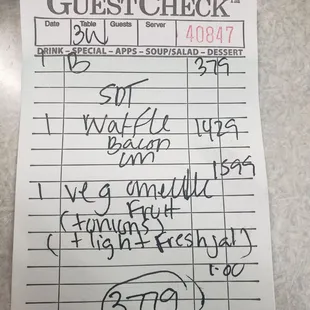 GUESTCHECK™
Date Table Guests Server
3W 40847
DRINK – SPECIAL – APPS – SOUP/SALAD – DESSERT
1 B 379
SDT
1 Waffle 1429
Bacon
1599
1 veg omelette
Fruit
(+onions)
(+light+Freshjal)
1.00
3779